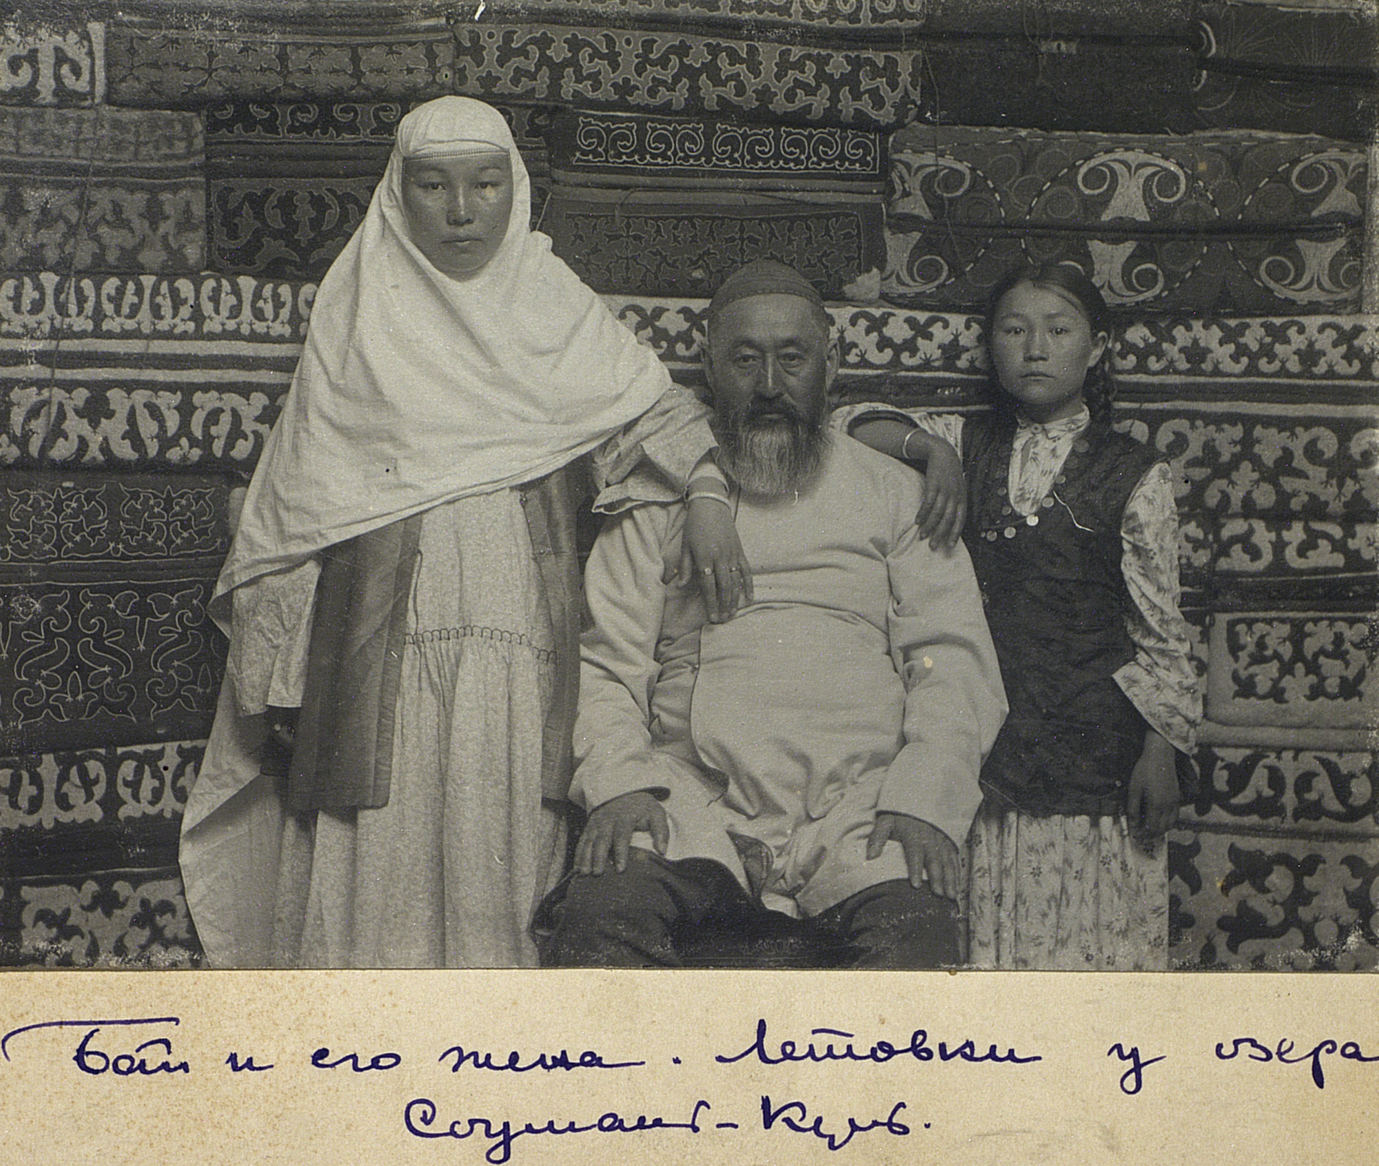 Бай и его жена. Летовки у озера
Соушант-Куль.